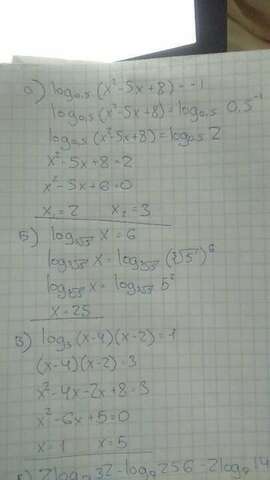 а) log₀,₅(x²-5x+8)=-1
log₀,₅(x²-5x+8)=log₀,₅ 0,5⁻¹
log₀,₅(x²-5x+8)=log₀,₅ 2
x²-5x+8=2
x²-5x+6=0
x₁=2 x₂=3
Б) log∛5 x=6
log∛5 x=log∛5 (∛5)⁶
log∛5 x=log∛5 5²
x=25
В) log₃(x-4)(x-2)=1
(x-4)(x-2)=3
x²-4x-2x+8=3
x²-6x+5=0
x=1 x=5
2log₉32-log₉256-2log₉14